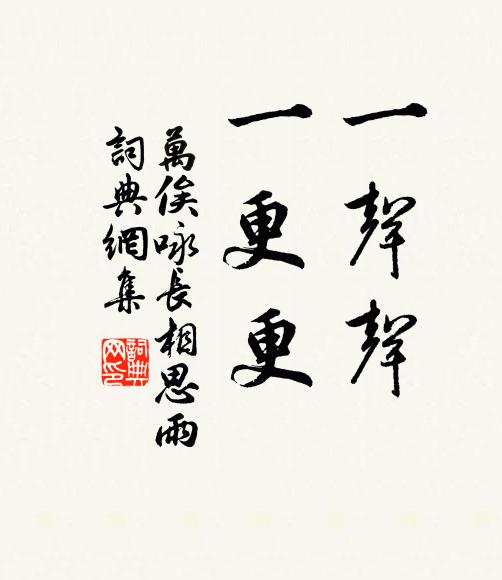 一聲聲
一更更
萬俟咏長相思雨
詞典網集
詞典
网印